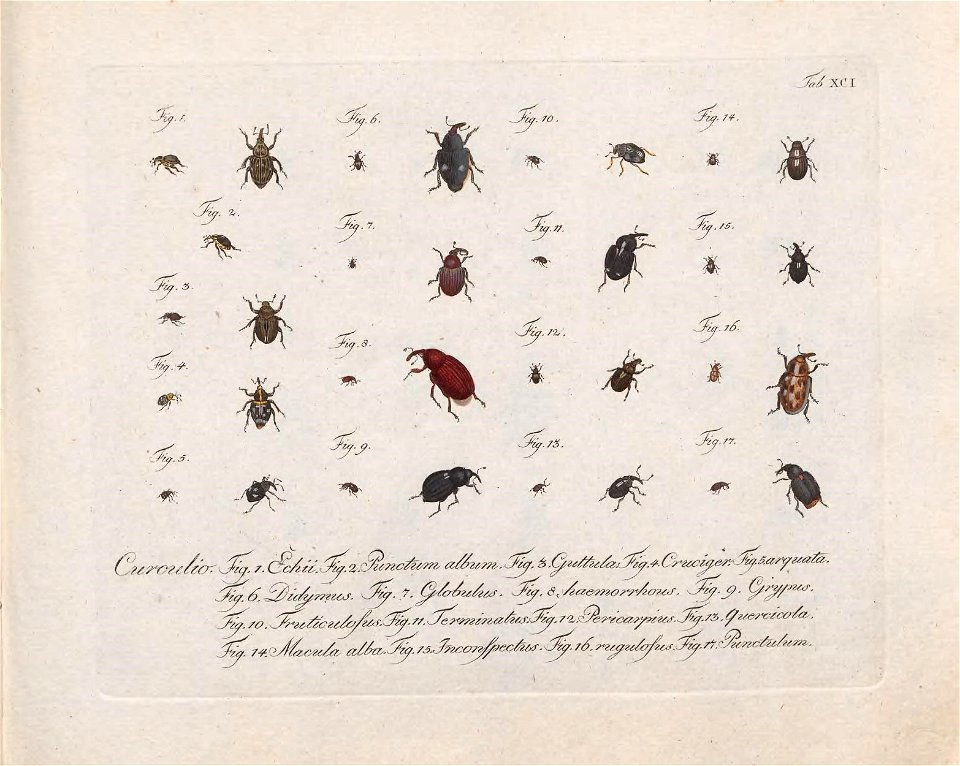 Tab XCI
Fig. 1.
Fig. 6.
Fig. 10.
Fig. 14.
Fig. 2.
Fig. 7.
Fig. 11.
Fig. 15.
Fig. 3.
Fig. 8.
Fig. 12.
Fig. 16.
Fig. 4.
Fig. 9.
Fig. 13.
Fig. 17.
Fig. 5.
Curculio. Fig. 1. Echii. Fig. 2. Punctum album. Fig. 3. Guttula. Fig. 4. Cruciger. Fig. 5. arquata.
Fig. 6. Didymus. Fig. 7. Globulus. Fig. 8. haemorrhous. Fig. 9. Grypus.
Fig. 10. Fruticulosus. Fig. 11. Terminatus. Fig. 12. Pericarpius. Fig. 13. Quercicola.
Fig. 14. Macula alba. Fig. 15. Inconspectus. Fig. 16. rugulosus. Fig. 17. Punctulum.